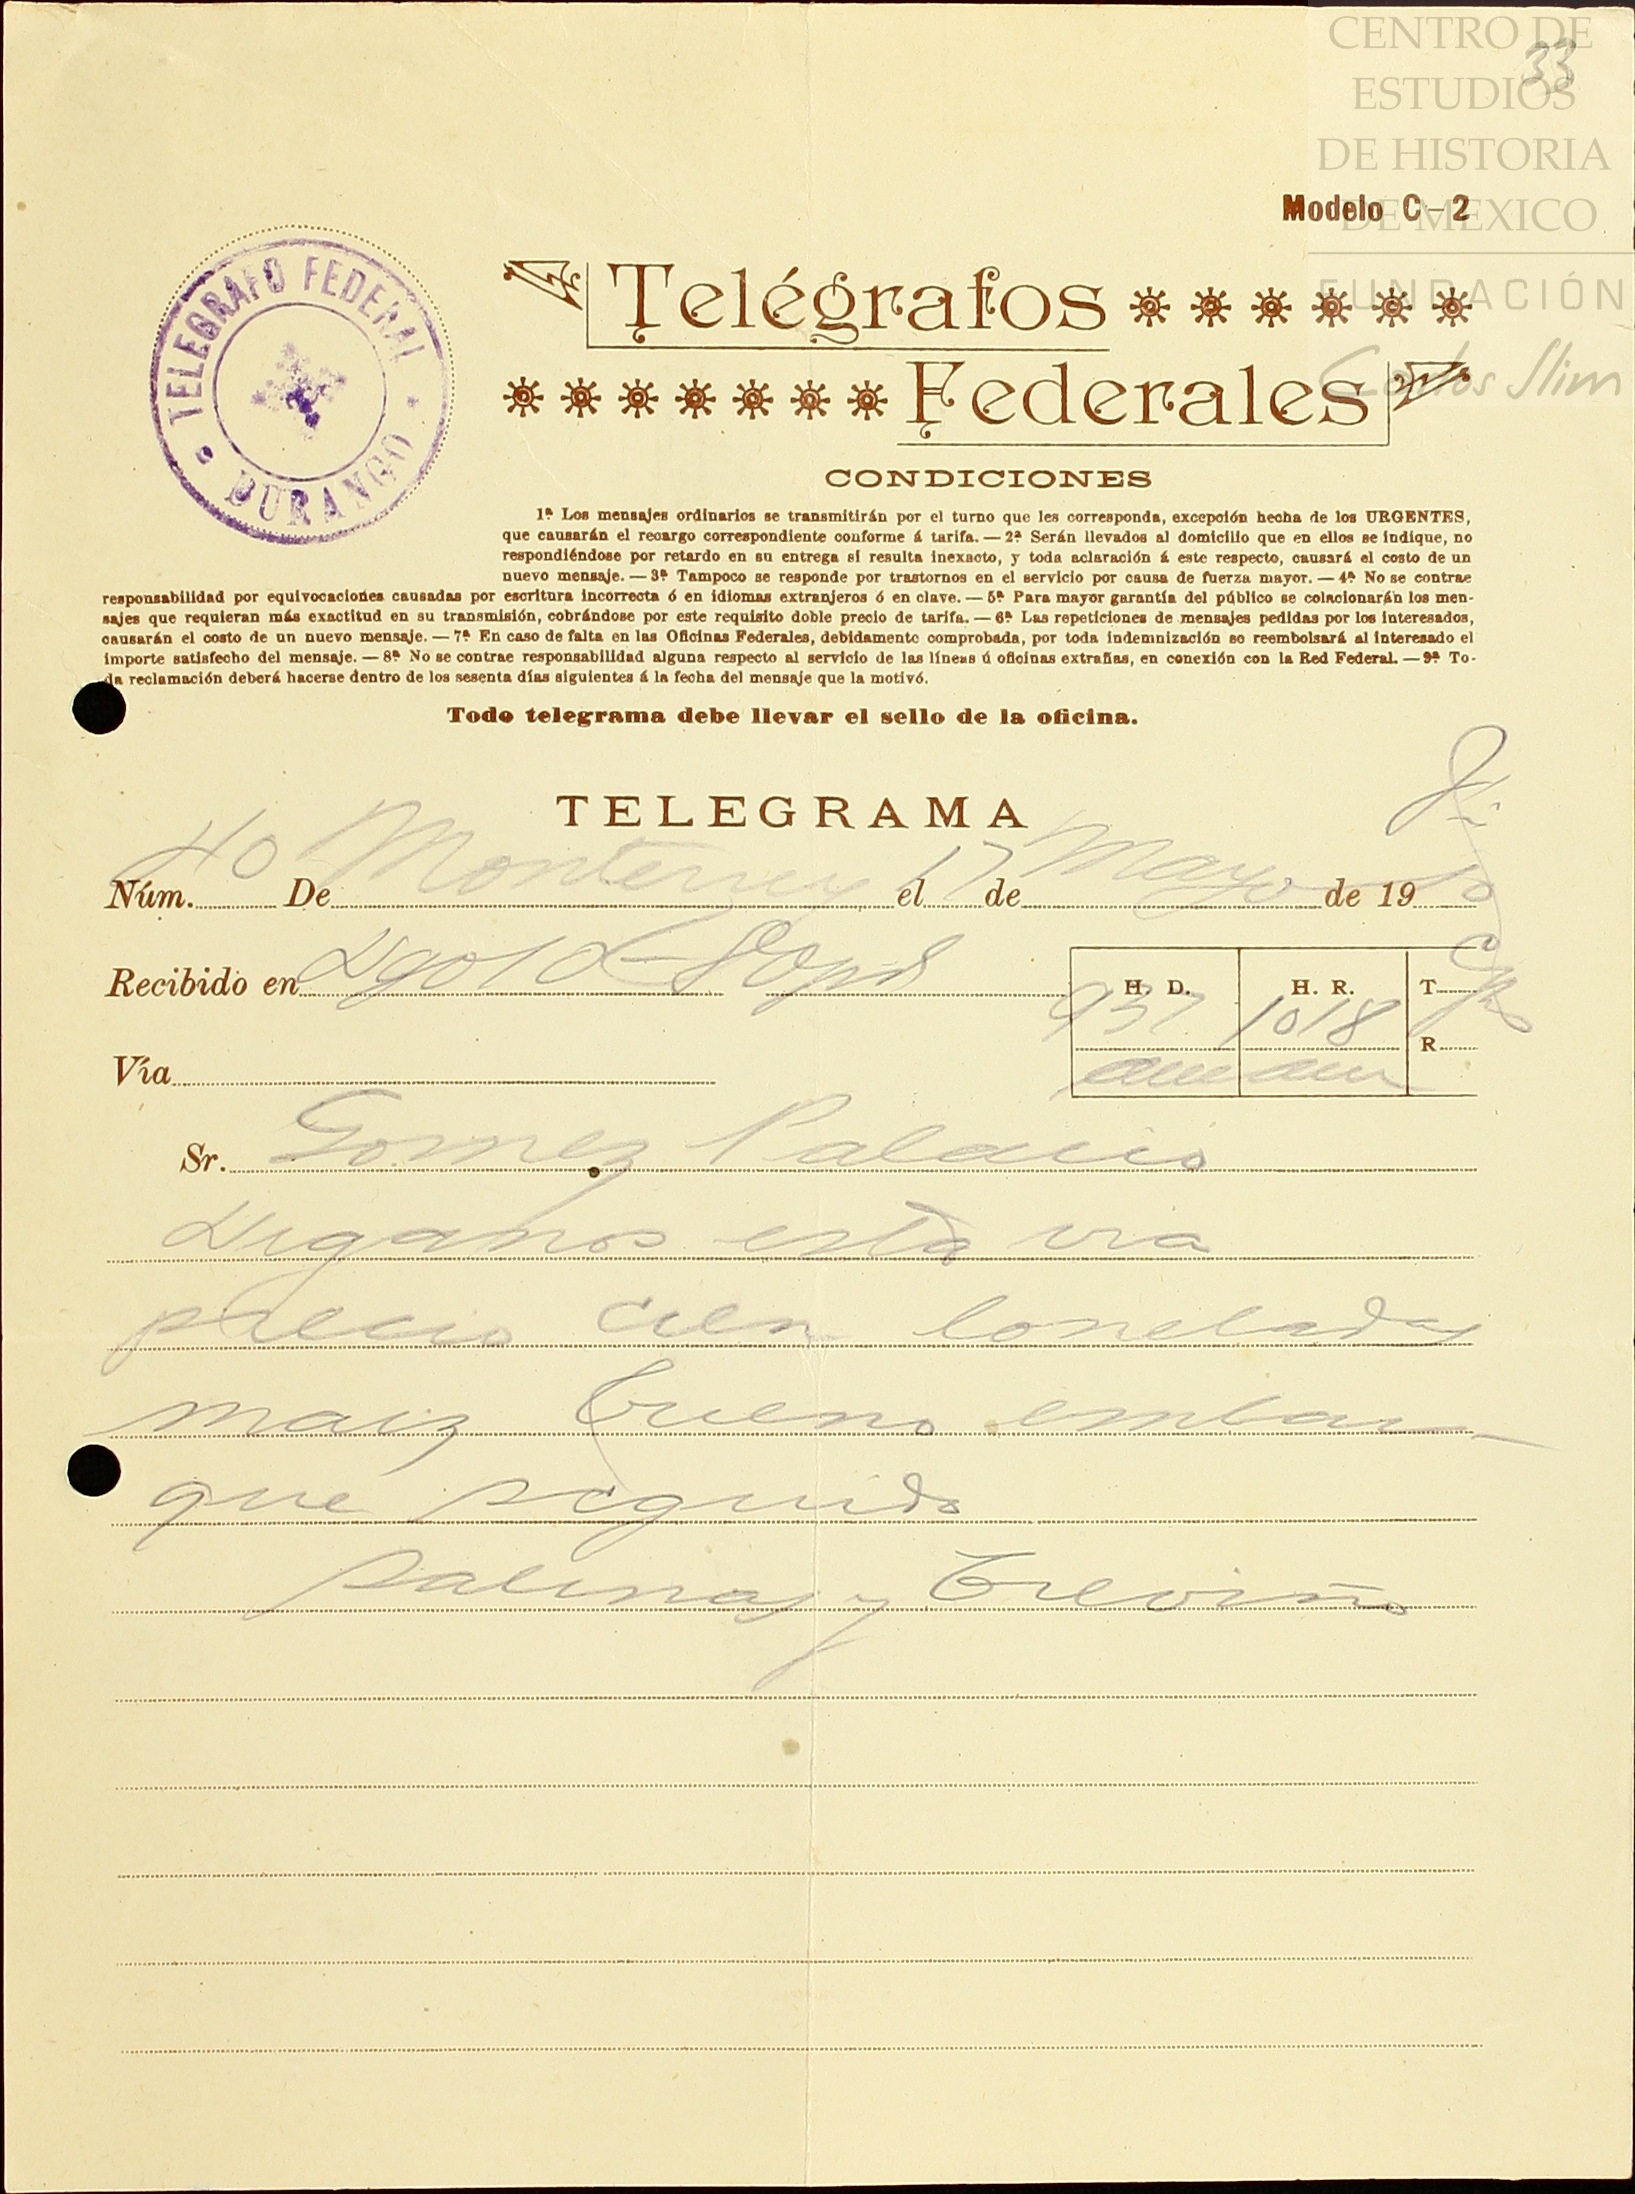 CENTRO DE
ESTUDIOS
DE HISTORIA
DE MEXICO
FUNDACIÓN
Carlos Slim
33
Modelo C-2
TELEGRAFO FEDERAL
DURANGO
Telégrafos
Federales
CONDICIONES
1ª Los mensajes ordinarios se transmitirán por el turno que les corresponda, excepción hecha de los URGENTES,
que causarán el recargo correspondiente conforme á tarifa. — 2ª Serán llevados al domicilio que en ellos se indique, no
respondiéndose por retardo en su entrega si resulta inexacto, y toda aclaración á este respecto, causará el costo de un
nuevo mensaje. — 3ª Tampoco se responde por trastornos en el servicio por causa de fuerza mayor. — 4ª No se contrae
responsabilidad por equivocaciones causadas por escritura incorrecta ó en idiomas extranjeros ó en clave. — 5ª Para mayor garantía del público se colacionarán los men-
sajes que requieran más exactitud en su transmisión, cobrándose por este requisito doble precio de tarifa. — 6ª Las repeticiones de mensajes pedidas por los interesados,
causarán el costo de un nuevo mensaje. — 7ª En caso de falta en las Oficinas Federales, debidamente comprobada, por toda indemnización se reembolsará al interesado el
importe satisfecho del mensaje. — 8ª No se contrae responsabilidad alguna respecto al servicio de las líneas ú oficinas extrañas, en conexión con la Red Federal. — 9ª To-
da reclamación deberá hacerse dentro de los sesenta días siguientes á la fecha del mensaje que la motivó.
Todo telegrama debe llevar el sello de la oficina.
TELEGRAMA
Núm. 40 De Monterrey el 17 de Mayo de 1910
Recibido en Dgo
H. D. H. R. T.
937 1018
R
am am
Vía
Sr. Gomez Palacio
Diganos esta via
precio cien toneladas
maiz bueno embar-
que seguido
Salinas y Treviño